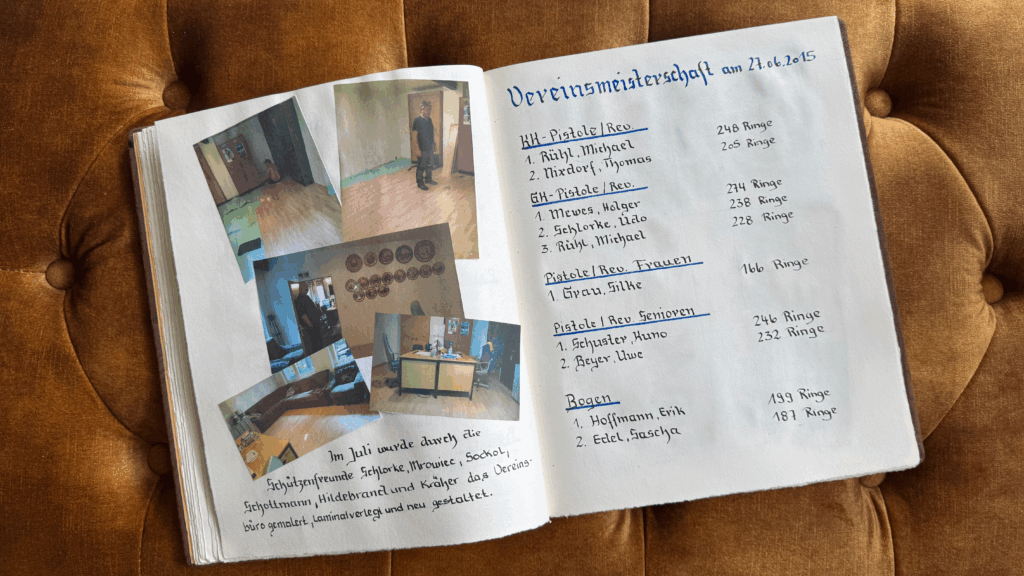 Im Juli wurde durch die
Schützenfreunde Schlorke, Mrowiec, Sockol,
Schottmann, Hildebrand und Kräher das Vereins-
büro gemalert, Laminat verlegt und neu gestaltet.
Vereinsmeisterschaft am 27.06.2015
KK-Pistole/Rev.
1. Rühl, Michael 248 Ringe
2. Nixdorf, Thomas 205 Ringe
GK-Pistole/Rev.
1. Mewes, Holger 274 Ringe
2. Schlorke, Udo 238 Ringe
3. Rühl, Michael 228 Ringe
Pistole/Rev. Frauen
1. Grau, Silke 166 Ringe
Pistole/Rev Senioren
1. Schuster, Kuno 246 Ringe
2. Beyer, Uwe 232 Ringe
Bogen
1. Hoffmann, Erik 199 Ringe
2. Edel, Sascha 187 Ringe